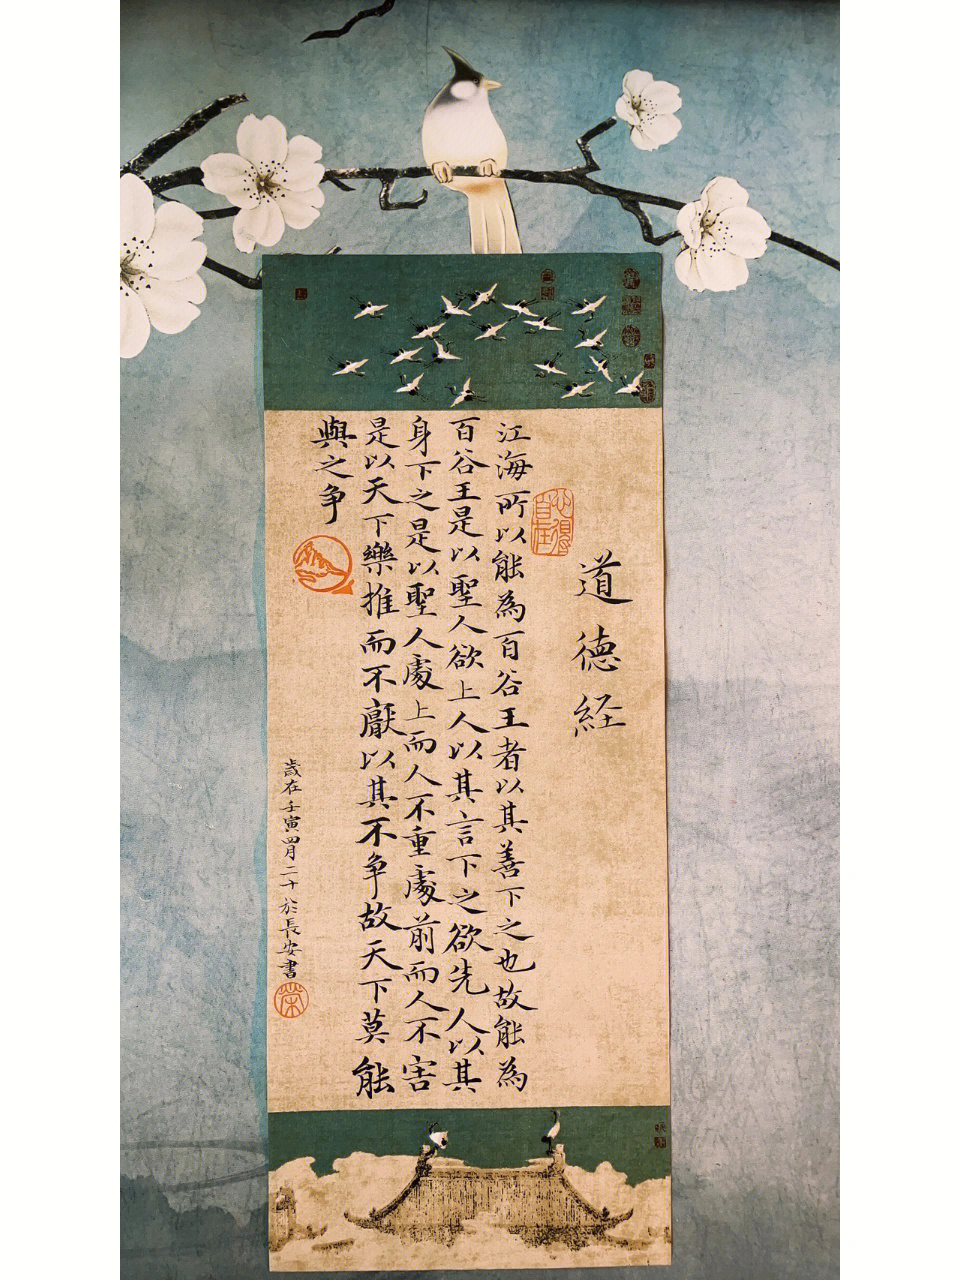 道德経
江海所以能為百谷王者以其善下之也故能為
百谷王是以聖人欲上人以其言下之欲先人以其
身下之是以聖人處上而人不重處前而人不害
是以天下樂推而不厭以其不争故天下莫能
與之争
歲在壬寅四月二十於長安書